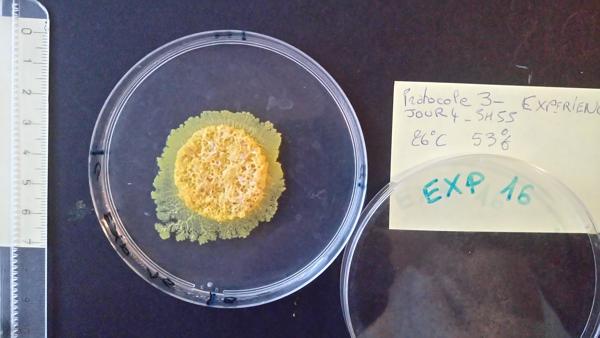 0
1
2
3
4
5
6
7
Protocole 3 - EXPERIENC
JOUR 4 - SH55
26°C 53%
EXP 16